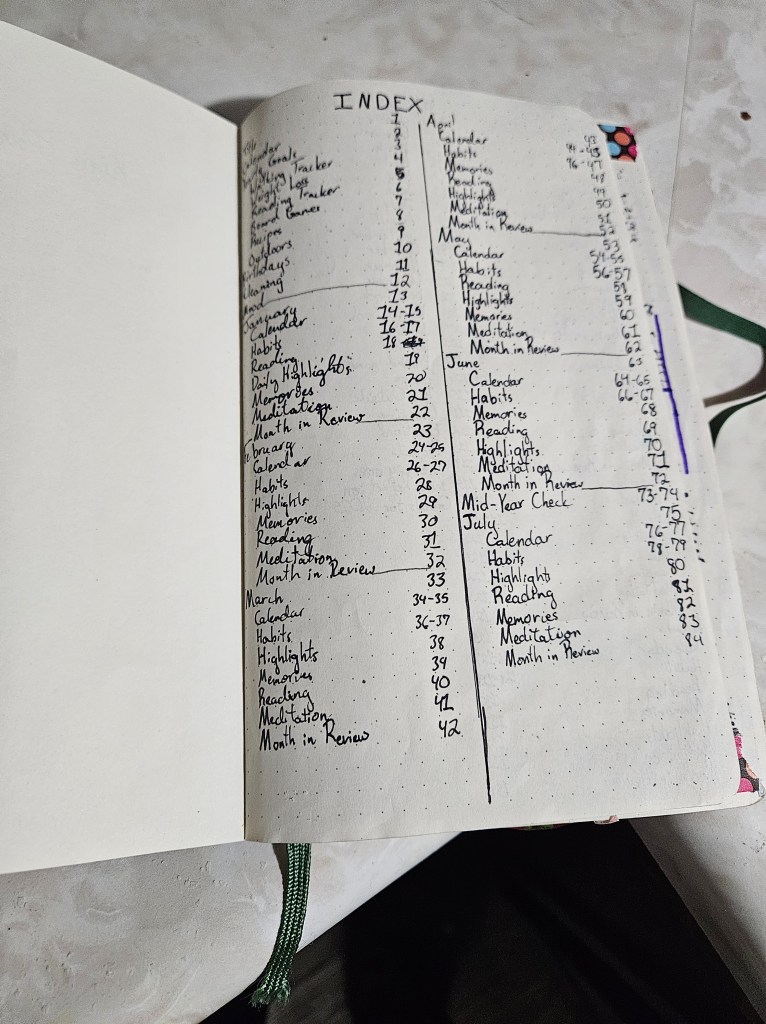 INDEX
1
Calendar 2
Goals 3
Walking Tracker 4
Weight Loss 5
Reading Tracker 6
Board Games 7
Recipes 8
Outdoors 9
Birthdays 10
Cleaning 11
Mood 12
January 13
Calendar 14-15
Habits 16-17
Reading 18
Daily Highlights 19
Memories 20
Meditation 21
Month in Review 22
February 23
Calendar 24-25
Habits 26-27
Highlights 28
Memories 29
Reading 30
Meditation 31
Month in Review 32
March 33
Calendar 34-35
Habits 36-37
Highlights 38
Memories 39
Reading 40
Meditation 41
Month in Review 42
April 43
Calendar 44-45
Habits 46-47
Memories 48
Reading 49
Highlights 50
Meditation 51
Month in Review 52
May 53
Calendar 54-55
Habits 56-57
Reading 58
Highlights 59
Memories 60
Meditation 61
Month in Review 62
June 63
Calendar 64-65
Habits 66-67
Memories 68
Reading 69
Highlights 70
Meditation 71
Month in Review 72
Mid-Year Check 73-74
July 75
Calendar 76-77
Habits 78-79
Highlights 80
Reading 81
Memories 82
Meditation 83
Month in Review 84